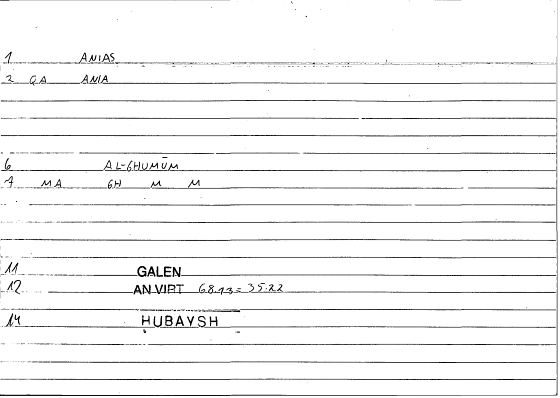 1 ANIAS
2 QA ANIA
6 AL-GHUMŪM
7 MA GH M M
11 GALEN
12 AN VIRT 68.13 = 35.22
14 HUBAYSH